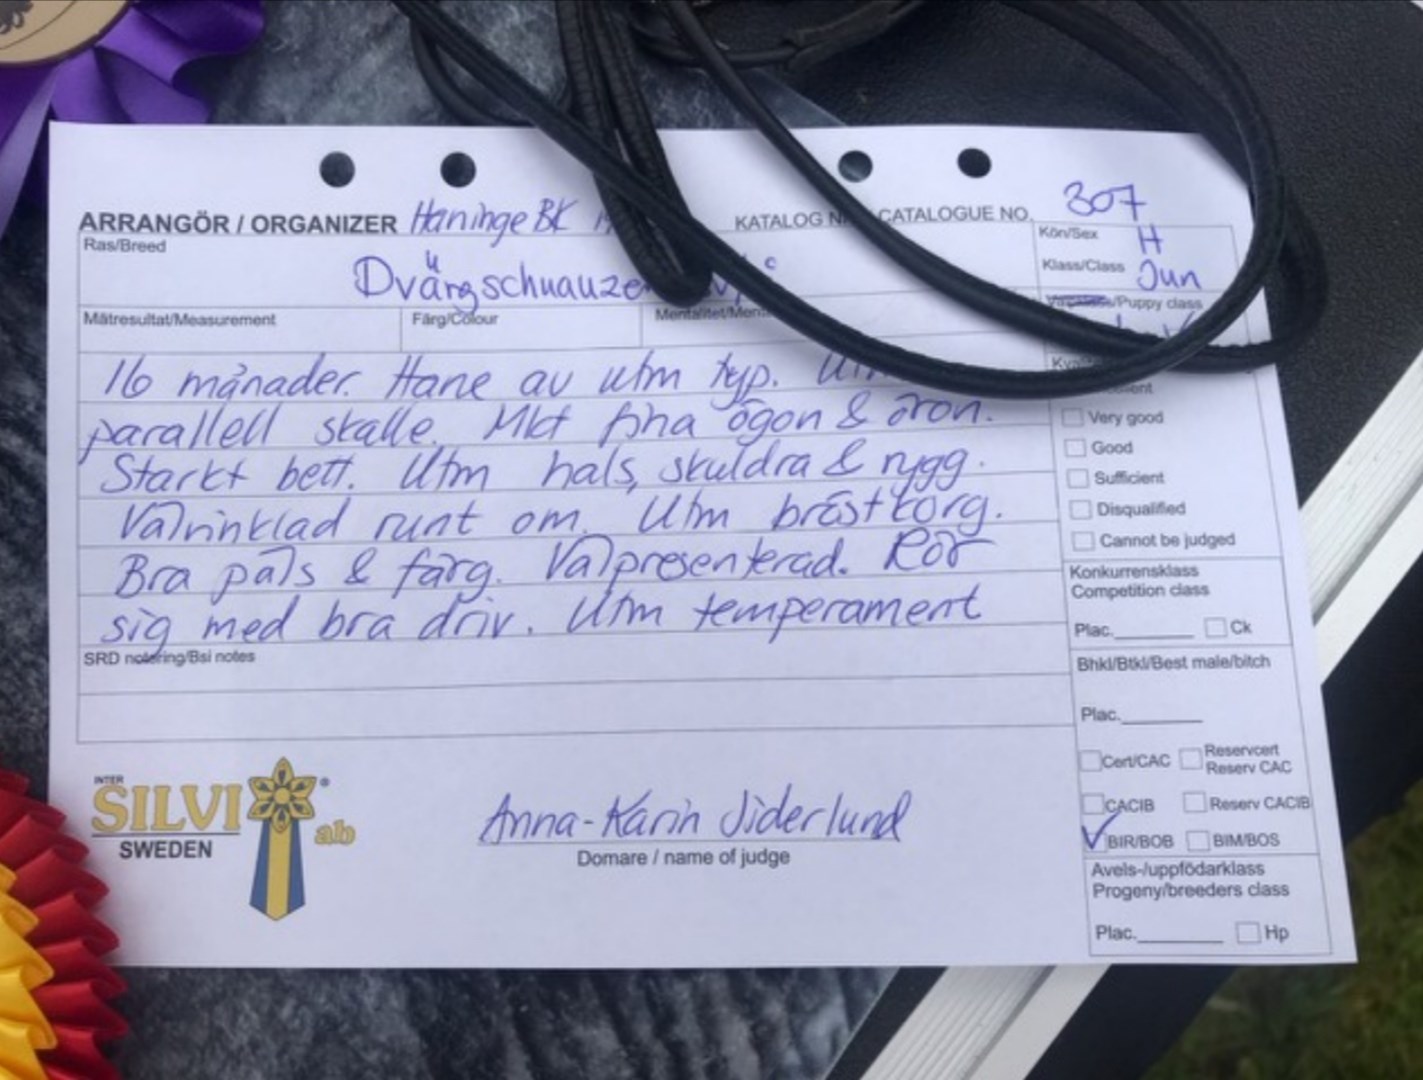 ARRANGÖR / ORGANIZER Haninge BK
KATALOG NR CATALOGUE NO. 307
Ras/Breed
Dvärgschnauzer
Kön/Sex H
Klass/Class Jun
/Puppy class
Mätresultat/Measurement
Färg/Colour
Mentalitet/
16 månader. Hane av utm typ.
parallell skalle. Mkt fina ögon & öron.
Starkt bett. Utm hals, skuldra & rygg.
Välvinklad runt om. Utm bröstkorg.
Bra päls & färg. Välpresenterad. Rör
sig med bra driv. Utm temperament
Very good
Good
Sufficient
Disqualified
Cannot be judged
Konkurrensklass
Competition class
Plac. Ck
SRD notering/Bsi notes
Bhkl/Btkl/Best male/bitch
Plac.
Cert/CAC
Reservcert
Reserv CAC
CACIB
Reserv CACIB
BIR/BOB
BIM/BOS
Avels-/uppfödarklass
Progeny/breeders class
Plac. Hp
INTER
SILVI
ab
SWEDEN
Anna-Karin
Domare / name of judge